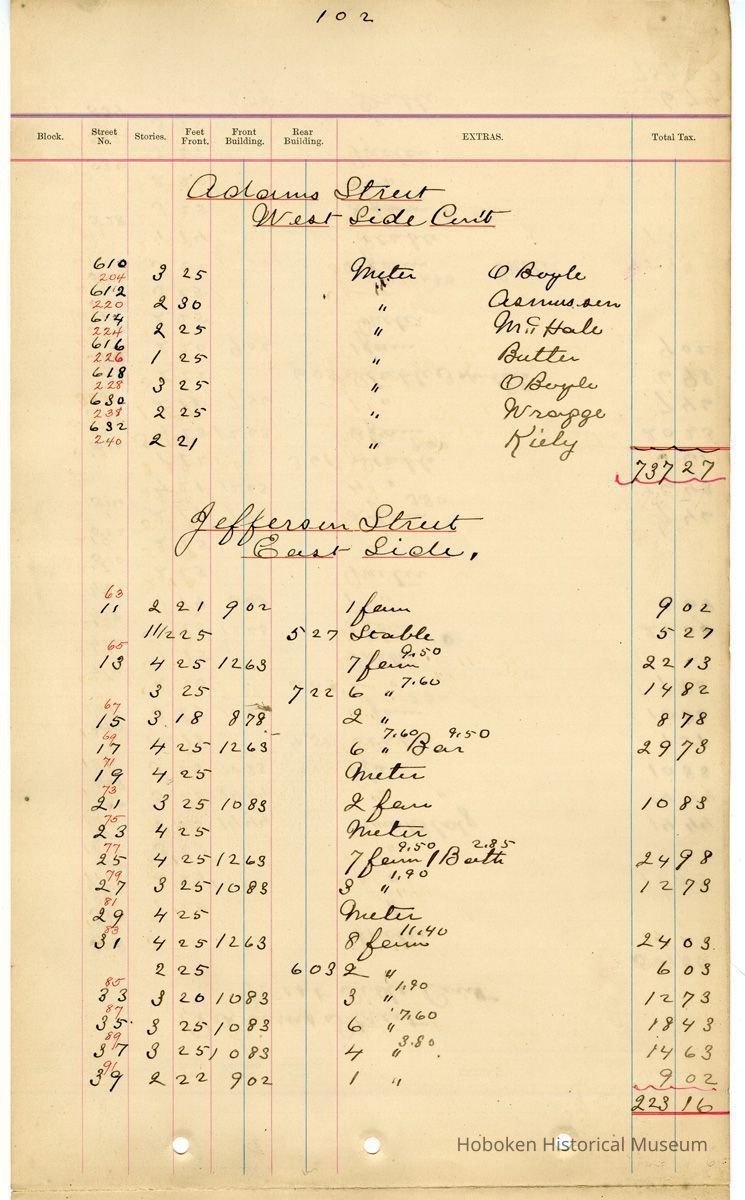 102
Block. Street No. Stories. Feet Front. Front Building. Rear Building. EXTRAS. Total Tax.
Adams Street
West Side Con't
610
204 3 25 Meter O Boyle
612
220 2 30 " Asmussen
614
224 2 25 " Mc Hale
616
226 1 25 " Butler
618
228 3 25 " O Boyle
630
238 2 25 " Wragge
632
240 2 21 " Kiely
737 27
Jefferson Street
East Side.
63
11 2 21 9 02 1 fam 9 02
1 1/2 25 5 27 Stable 5 27
65
13 4 25 12 63 7 fam 9.50 22 13
3 25 7 22 6 " 7.60 14 82
67
15 3 18 8 78 2 " 8 78
69
17 4 25 12 63 6 " 7.60 Bar 9.50 29 73
71
19 4 25 Meter
73
21 3 25 10 83 2 fam 10 83
75
23 4 25 Meter
77
25 4 25 12 63 7 fam 9.50 1 Bath 2.85 24 98
79
27 3 25 10 83 3 " 1.90 12 73
81
29 4 25 Meter
83
31 4 25 12 63 8 fam 11.40 24 03
2 25 6 03 2 " 6 03
85
33 3 20 10 83 3 " 1.90 12 73
87
35 3 25 10 83 6 " 7.60 18 43
89
37 3 25 10 83 4 " 3.80 14 63
91
39 2 22 9 02 1 " 9 02
223 16
Hoboken Historical Museum